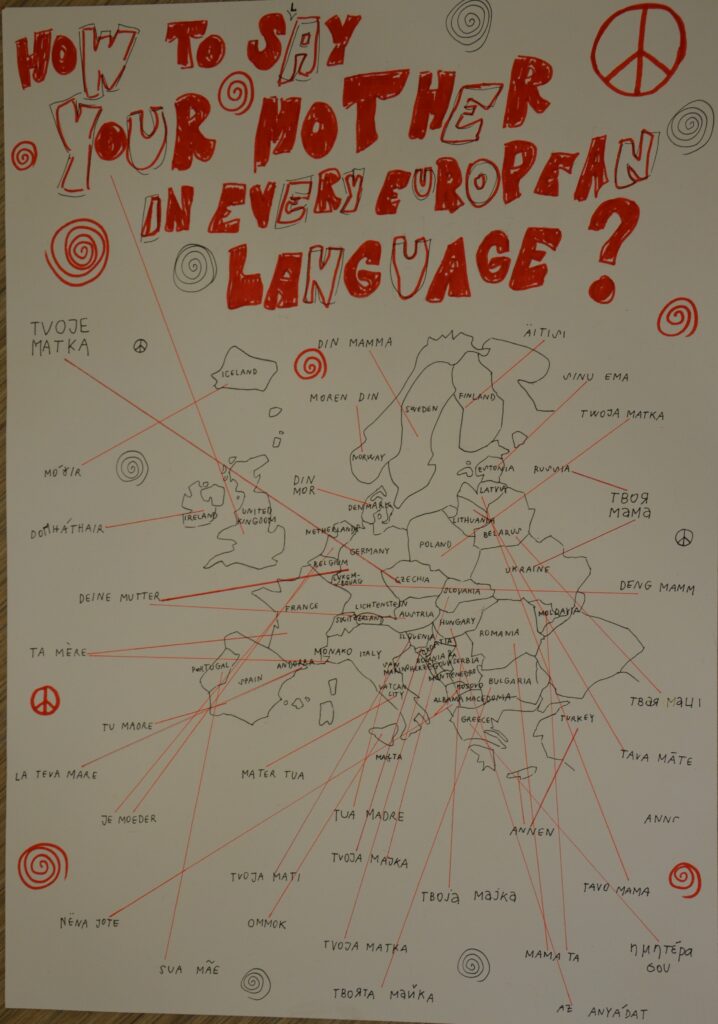 HOW TO SAY
YOUR MOTHER
IN EVERY EUROPEAN
LANGUAGE?
TVOJE
MATKA
DIN MAMMA
ÄITISI
ICELAND
MOREN DIN
SINU EMA
SWEDEN
FINLAND
TWOJA MATKA
NORWAY
ESTONIA
RUSSIA
DIN
MOR
LATVIA
ТВОЯ
МАМА
IRELAND
UNITED
KINGDOM
DENMARK
LITHUANIA
BELARUS
NETHERLANDS
GERMANY
POLAND
BELGIUM
UKRAINE
LUXEM-
BOURG
CZECHIA
DEINE MUTTER
SLOVAKIA
DENG MAMM
FRANCE
LICHTENSTEIN
AUSTRIA
MOLDAVIA
SWITZERLAND
HUNGARY
ROMANIA
SLOVENIA
TA MÈRE
MONAKO
ITALY
PORTUGAL
ANDORRA
SPAIN
SAN
MARINO
SERBIA
MONTENEGRO
VATCAN
CITY
KOSOVO
BULGARIA
ALBANIA
MACEDONIA
GREECE
TURKEY
ТВАЯ МАЦІ
TU MADRE
MALTA
TAVA MĀTE
LA TEVA MARE
MATER TUA
JE MOEDER
TUA MADRE
ANNEN
TVOJA MAJKA
TVOJA MATI
TAVO MAMA
ТВОЈА МАЈКА
NËNA JOTE
OMMOK
TVOJA MATKA
MAMA TA
η μητέρα
σου
SUA MÃE
ТВОЯТА МАЙКА
AZ ANYÁDAT